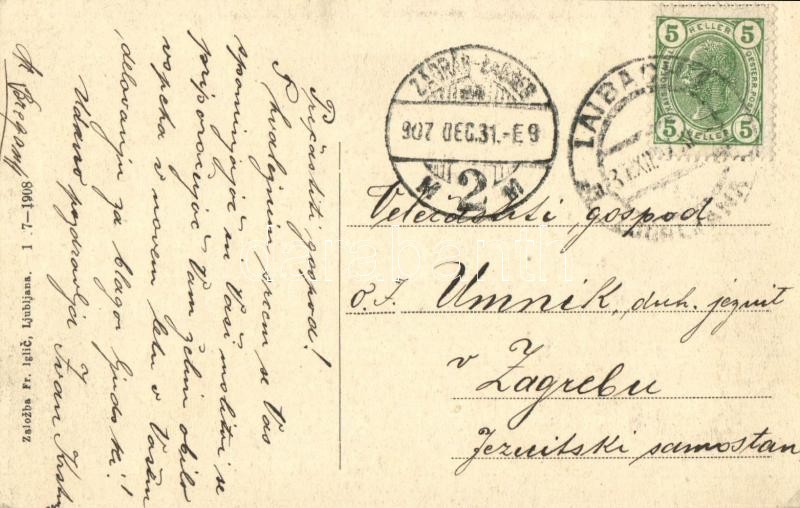 Prečastiti gospod!
S hvaležnim srcem se Vas
spominjajoč in Vaši molitvi se
priporočujoč Vam želim obilo
vspeha v novem letu v Vašem
delovanju za blagor ljudski!
Udano pozdravlja Ivan
Založba Fr. Iglič, Ljubljana. 1 7-1908
ZAGRAB-ZÁGRÁB
907 DEC.31.-E 9
M 2 M
LAIBACH
5 HELLER 5
5 HELLER 5
Velečastiti gospod
o. J. Umnik, duh. jezuit
v Zagrebu
Jezuitski samostan
darabanth